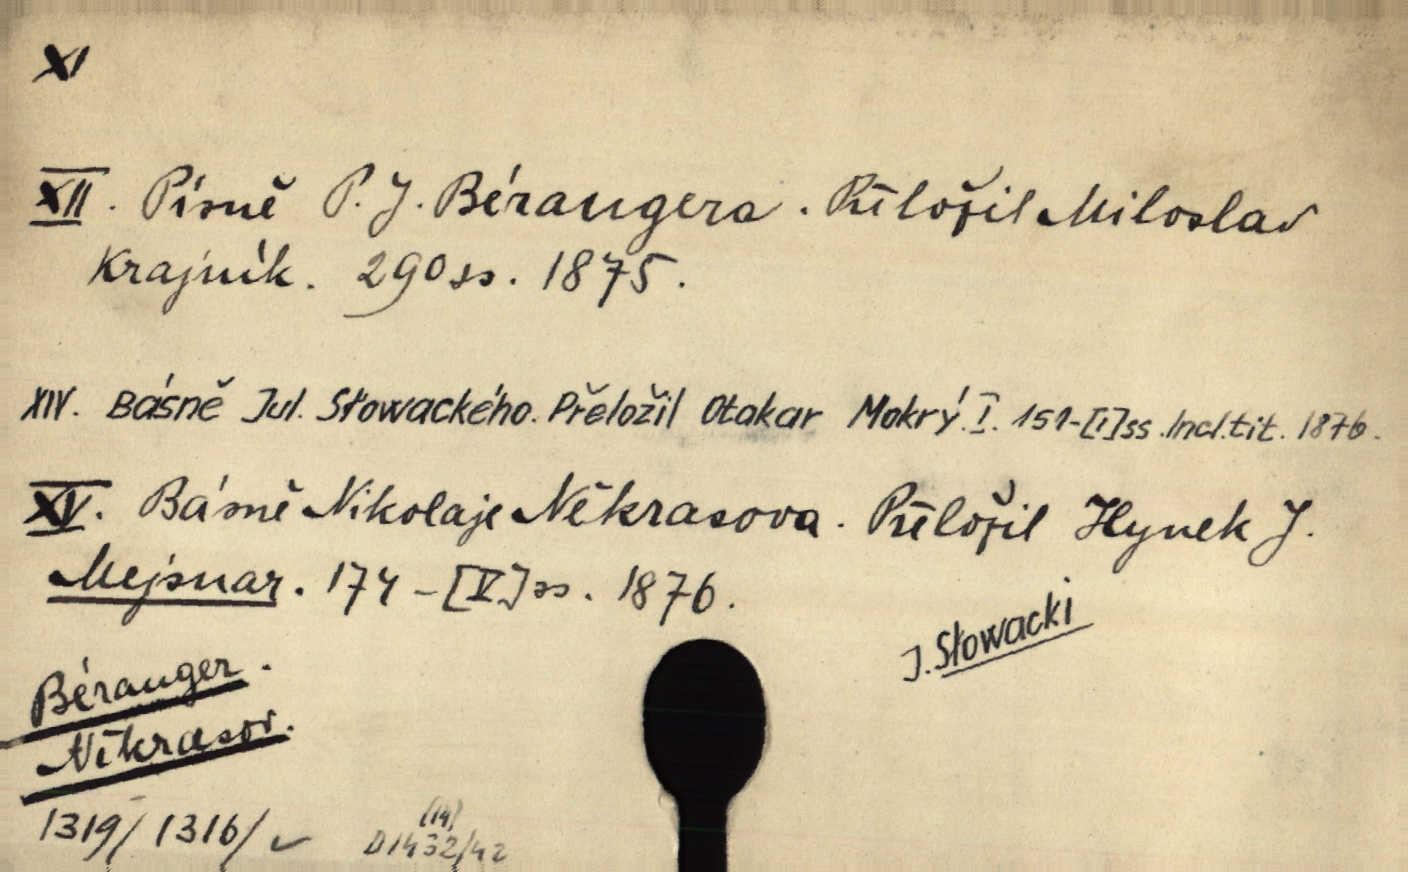 XI
XII. Písně P. J. Bérangera. Přeložil Miloslav
Krajník. 290 ss. 1875.
XIV. Básně Jul. Słowackého. Přeložil Otakar Mokrý. I. 151-[I]ss. Incl. tit. 1876.
XV. Básně Nikolaje Někrasova. Přeložil Hynek J.
Mejsnar. 174-[V]ss. 1876.
J. Słowacki
Béranger.
Někrasov.
1319/ 1316/ ✓
(14)
D1432/42